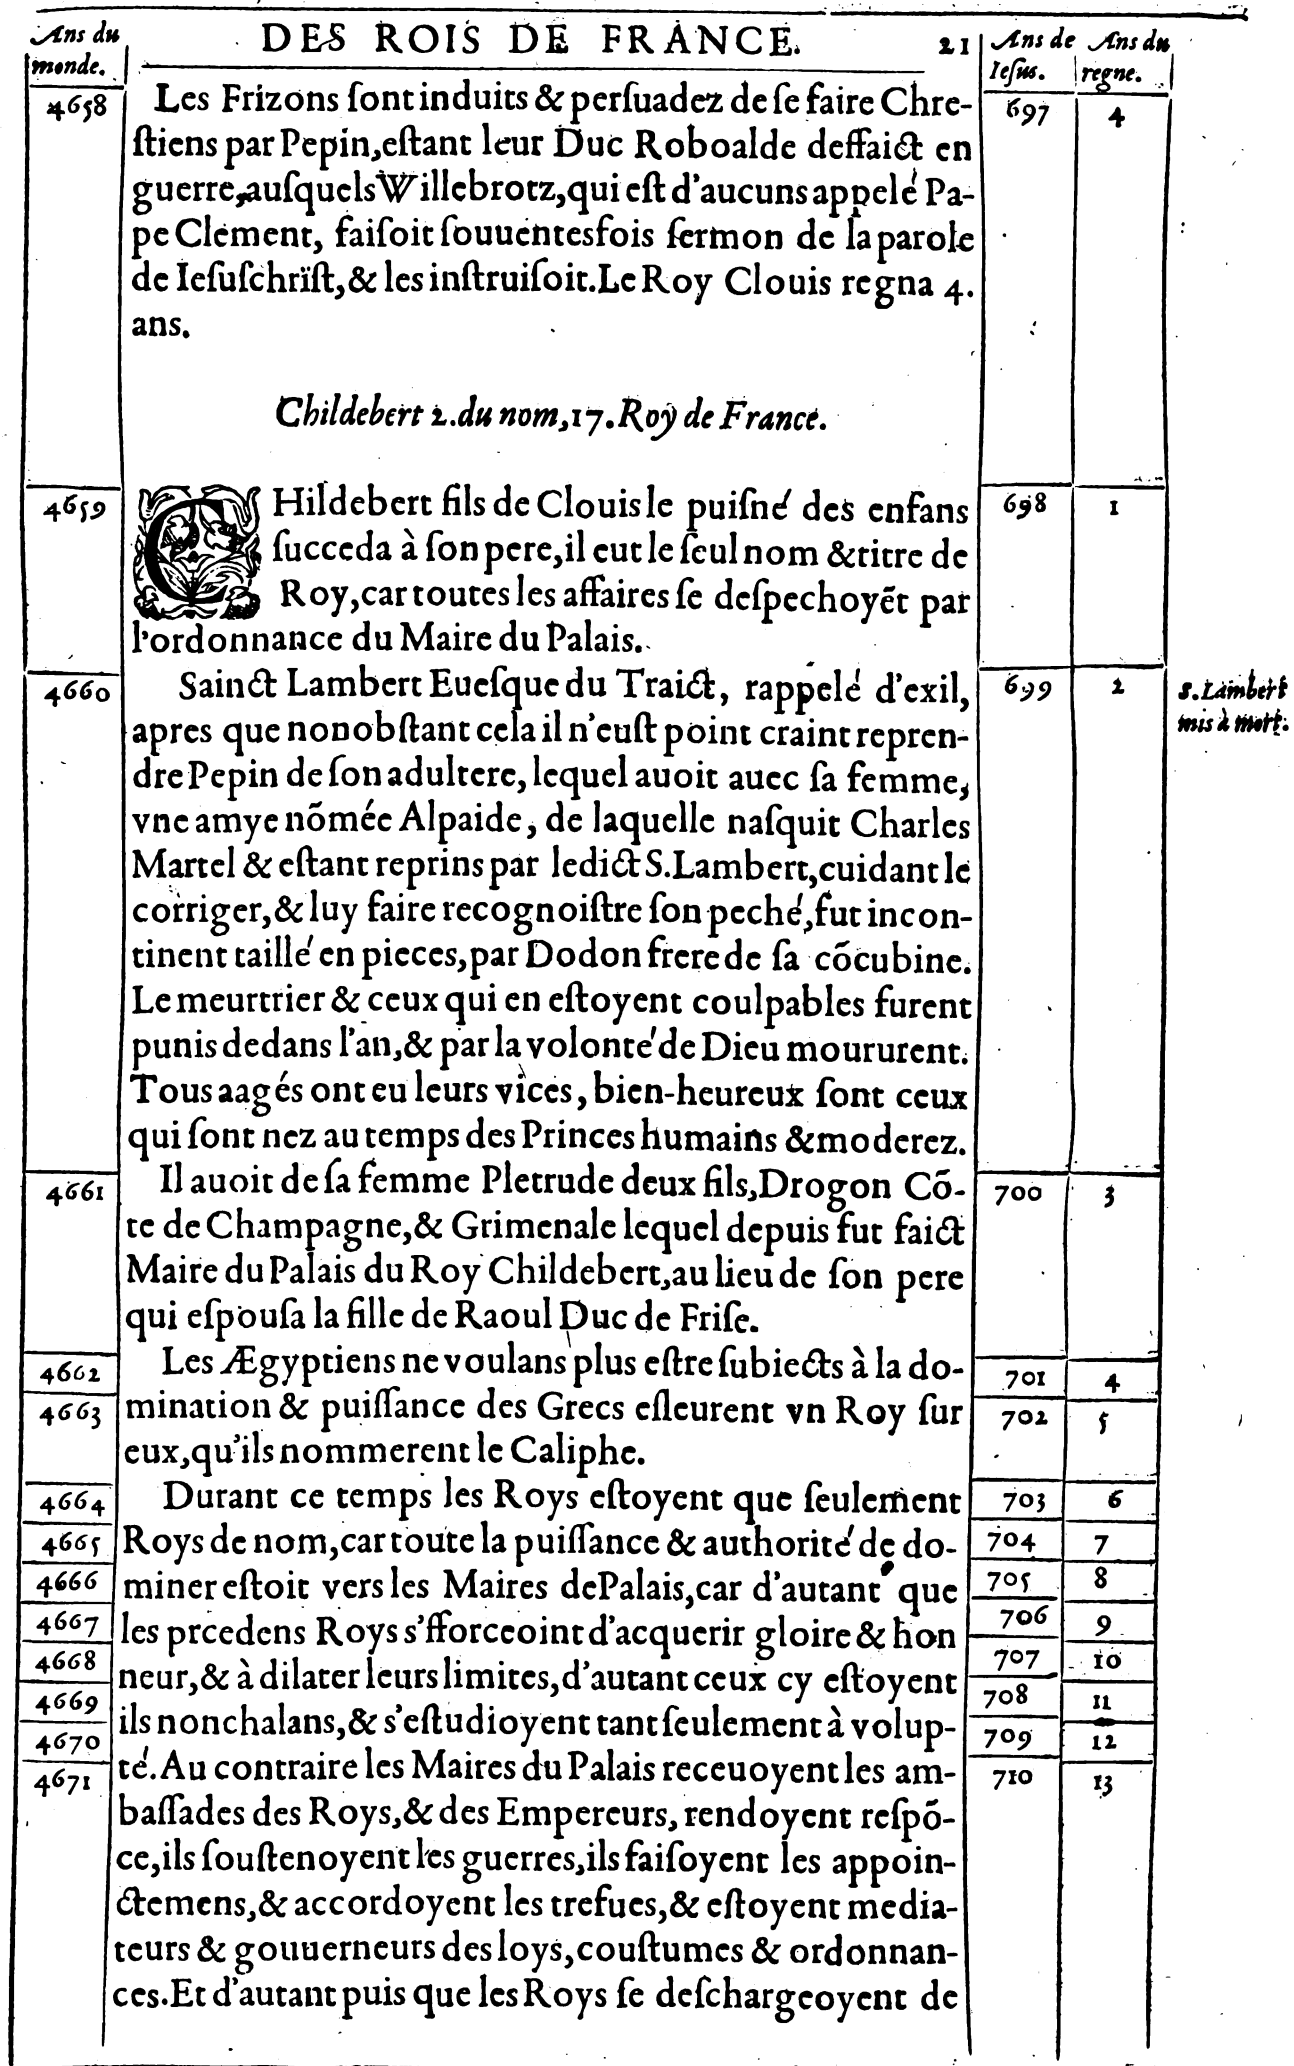 DES ROIS DE FRANCE. 21
Ans du
monde.
Ans de
Iesus.
Ans du
regne.
4658
697
4
Les Frizons ſont induits & perſuadez de ſe faire Chre-
ſtiens par Pepin, eſtant leur Duc Roboalde deffaict en
guerre, auſquels Willebrotz, qui eſt d'aucuns appelé Pa-
pe Clement, faiſoit ſouuentesfois ſermon de la parole
de Ieſuſchriſt, & les inſtruiſoit. Le Roy Clouis regna 4.
ans.
Childebert 2. du nom, 17. Roy de France.
4659
698
1
CHildebert fils de Clouis le puiſné des enfans
ſucceda à ſon pere, il eut le ſeul nom & titre de
Roy, car toutes les affaires ſe deſpechoyẽt par
l'ordonnance du Maire du Palais.
4660
699
2
S. Lambert
mis à mort.
Sainct Lambert Eueſque du Traict, rappelé d'exil,
apres que nonobſtant cela il n'euſt point craint repren-
dre Pepin de ſon adultere, lequel auoit auec ſa femme,
vne amye nõmée Alpaide, de laquelle naſquit Charles
Martel & eſtant reprins par ledict S. Lambert, cuidant le
corriger, & luy faire recognoiſtre ſon peché, fut incon-
tinent taillé en pieces, par Dodon frere de ſa cõcubine.
Le meurtrier & ceux qui en eſtoyent coulpables furent
punis dedans l'an, & par la volonté de Dieu moururent.
Tous aagés ont eu leurs vices, bien-heureux ſont ceux
qui ſont nez au temps des Princes humains & moderez.
4661
700
3
Il auoit de ſa femme Pletrude deux fils, Drogon Cõ-
te de Champagne, & Grimenale lequel depuis fut faict
Maire du Palais du Roy Childebert, au lieu de ſon pere
qui eſpouſa la fille de Raoul Duc de Friſe.
4662
701
4
Les Ægyptiens ne voulans plus eſtre ſubiects à la do-
4663
702
5
mination & puiſſance des Grecs eſleurent vn Roy ſur
eux, qu'ils nommerent le Caliphe.
4664
703
6
Durant ce temps les Roys eſtoyent que ſeulement
4665
704
7
Roys de nom, car toute la puiſſance & authorité de do-
4666
705
8
miner eſtoit vers les Maires de Palais, car d'autant que
4667
706
9
les prcedens Roys s'fforceoint d'acquerir gloire & hon
4668
707
10
neur, & à dilater leurs limites, d'autant ceux cy eſtoyent
4669
708
11
ils nonchalans, & s'eſtudioyent tant ſeulement à volup-
4670
709
12
té. Au contraire les Maires du Palais receuoyent les am-
4671
710
13
baſſades des Roys, & des Empereurs, rendoyent reſpõ-
ce, ils ſouſtenoyent les guerres, ils faiſoyent les appoin-
ctemens, & accordoyent les trefues, & eſtoyent media-
teurs & gouuerneurs des loys, couſtumes & ordonnan-
ces. Et d'autant puis que les Roys ſe deſchargeoyent de